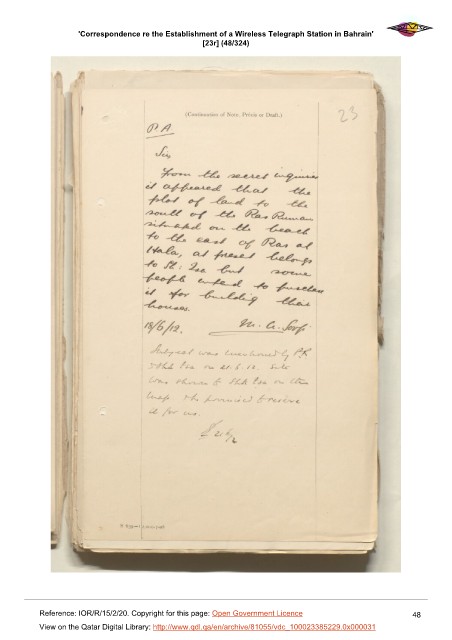 'Correspondence re the Establishment of a Wireless Telegraph Station in Bahrain'
[23r] (48/324)
(Continuation of Note, Précis or Draft.)
23
P.A.
Sir
From the secret inquiries
it appeared that the
plot of land to the
south of the Ras Ruman
situated on the beach
to the east of Ras al
Hala, at present belongs
to Sh: Isa but some
people intend to purchase
it for building their
houses.
18/6/12.
Subject was mentioned by P.A.
to Shk Isa on 21.6.12. Site
was shown to Shk Isa on the
map. He promised to reserve
it for us.
Reference: IOR/R/15/2/20. Copyright for this page: Open Government Licence
48
View on the Qatar Digital Library: http://www.qdl.qa/en/archive/81055/vdc_100023385229.0x000031